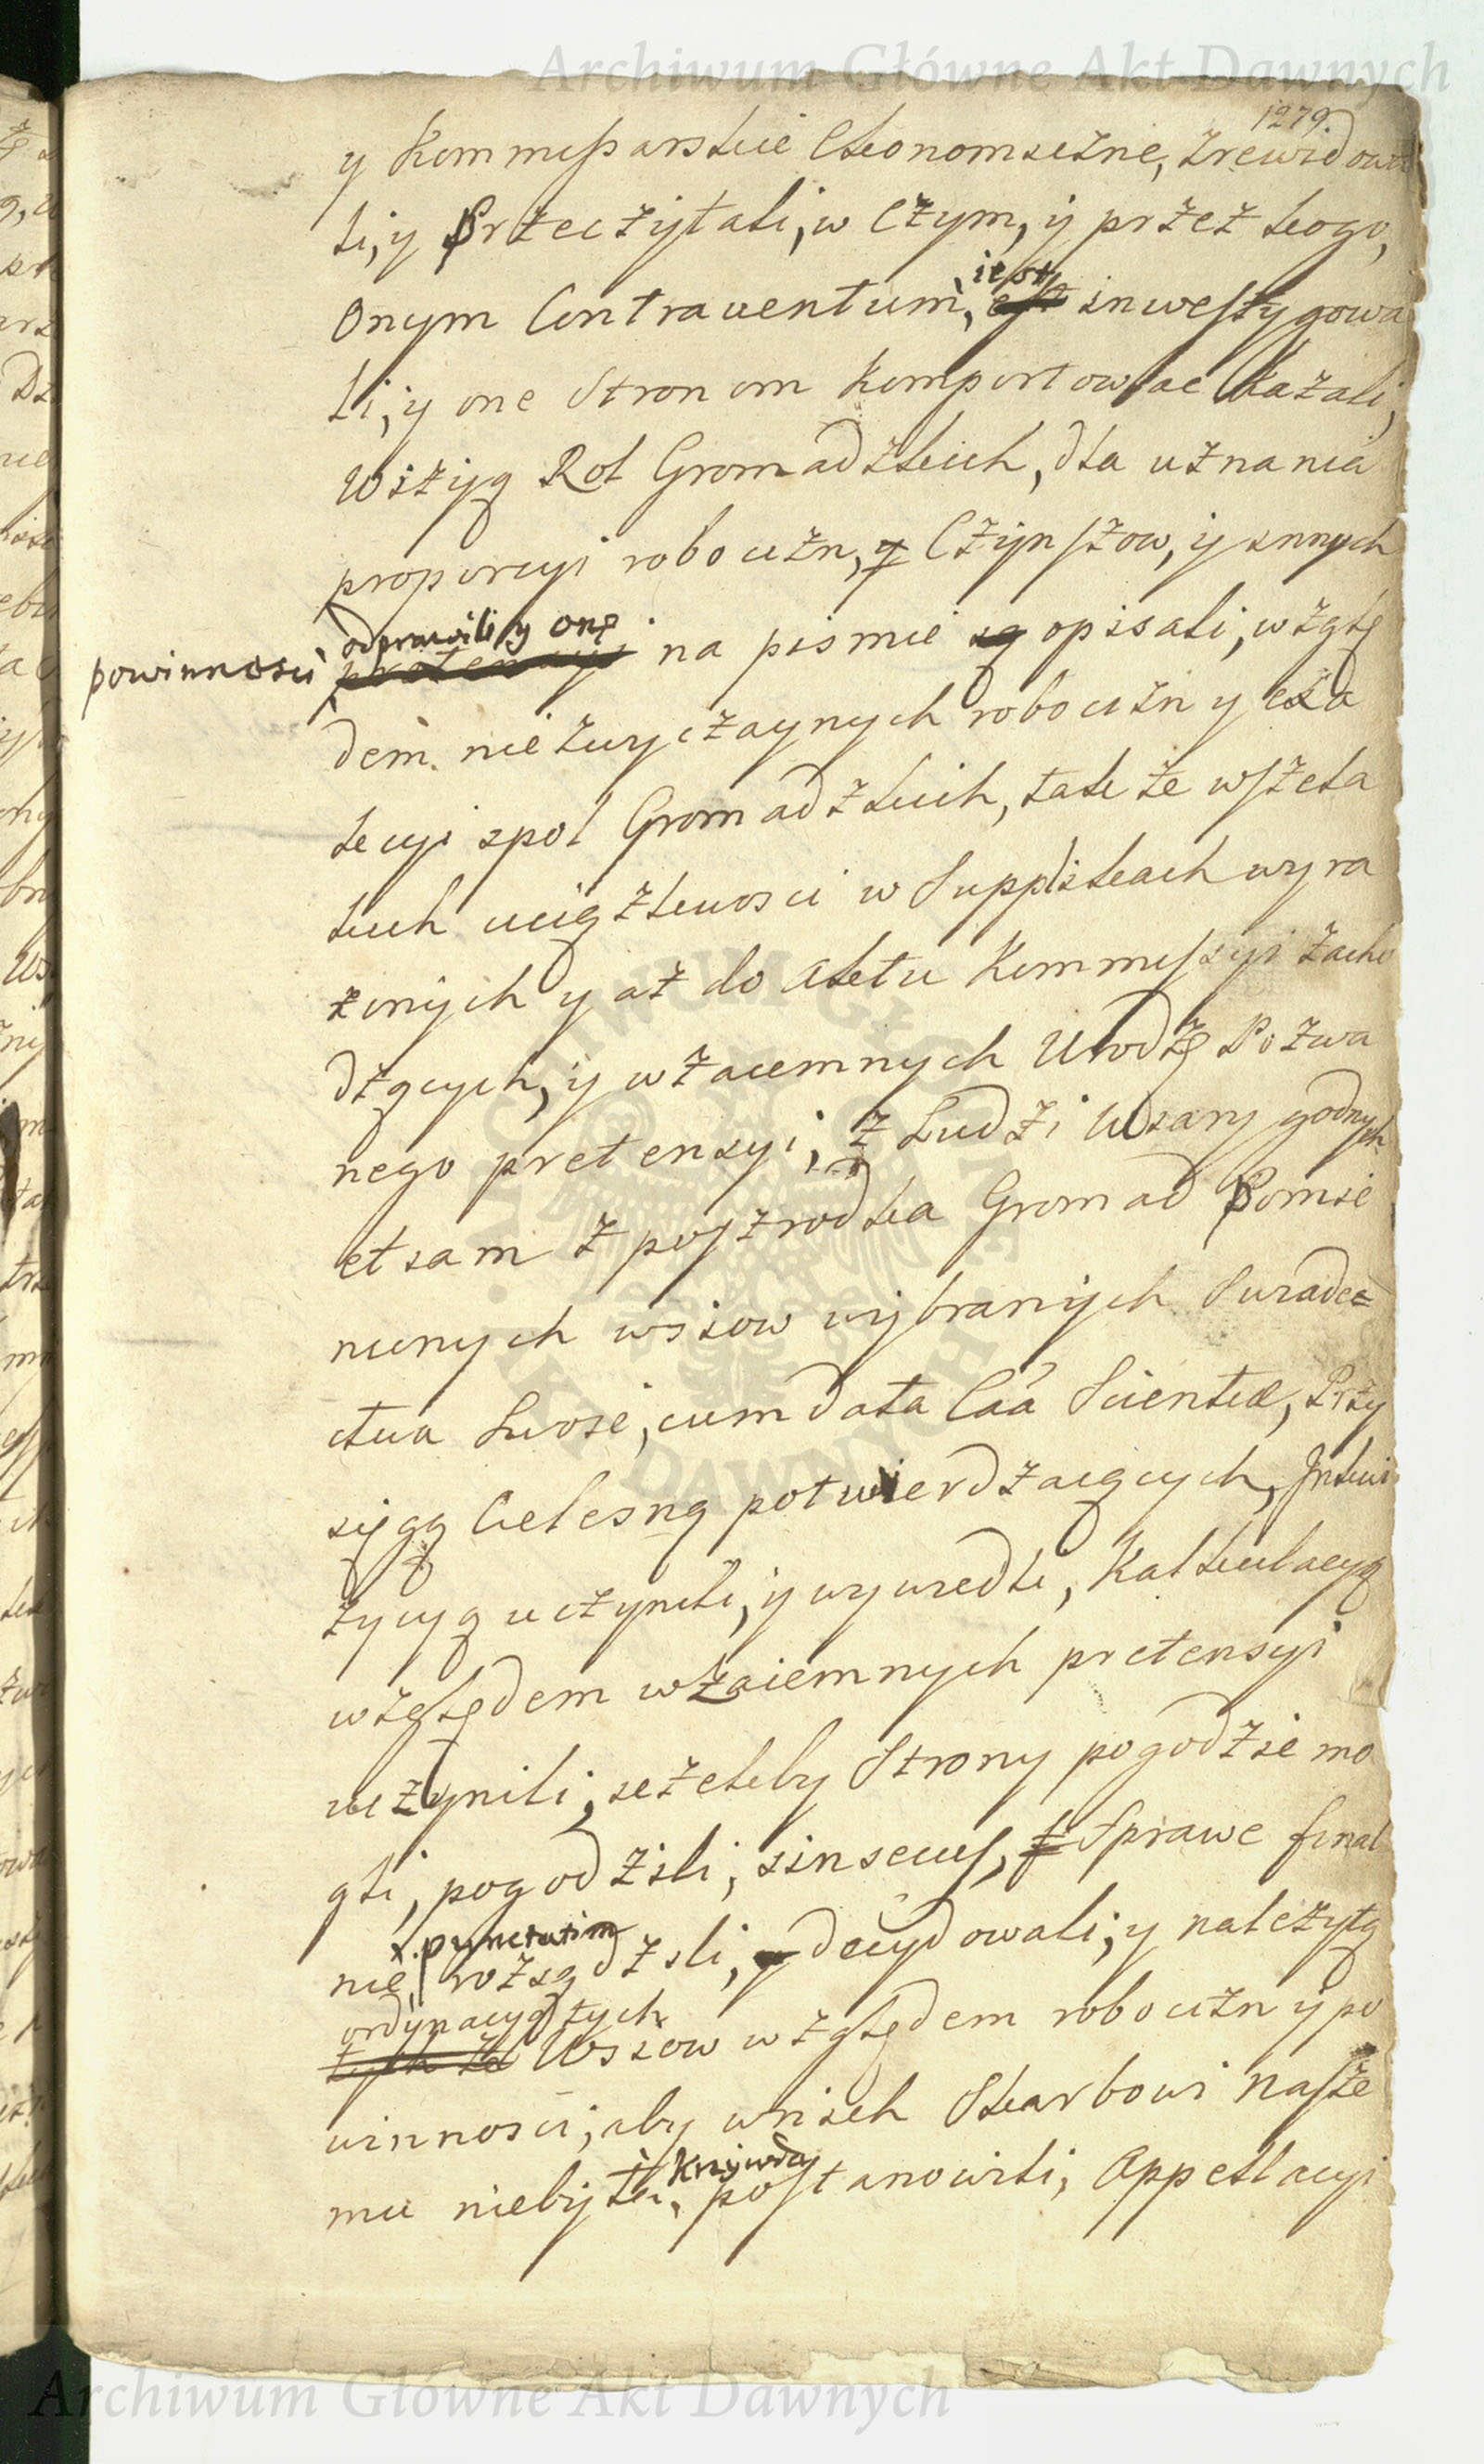 Archiwum Główne Akt Dawnych
1279
y Kommissarskie Ekonomiczne, zrewidowa
li, y Przeczytali, w Czym, y przez kogo,
Onym Contraventum, iest inwestygowa
li, y one Stronom komportować kazali,
Wizyą Rol Gromadzkich, dla uznania
proporcyi robocizn, y Czynszow, y innych
powinności odprawili y onę na pismie opisali, wzglę
dem niezwyczaynych robocizn y exa
kcyi z pol Gromadzkich, także wszela
kich uciążliwości w Supplikach wyra
żonych y aż do Aktu Kommissyi zacho
dzących, y wzaiemnych Urodzę Pozwa
nego pretensyi, z Ludzi Wiary godnych
etiam z poszrodka Gromad Pomie
nionych wsiow wybranych Swiade=
ctwa Swoie, cum data Caa Scientiæ, Przy
sięgą Cielesną potwierdzaiących, Inkwi
zycyą uczynili, y wywiedli, Kalkulacyą
względem wzaiemnych pretensyi
uczynili, ieżeliby Strony pogodzić mo
gli, pogodzili, sin secus, Sprawe final
nie, punctatim rozsądzili, decydowali, y należytą
ordynacyą tych Wsiow względem robocizn y po
winności, aby w nich Skarbowi nasze
mu niebyła krzywda, postanowili, Appellacyi
ARCHIWUM GŁÓWNE AKT DAWNYCH
Archiwum Główne Akt Dawnych